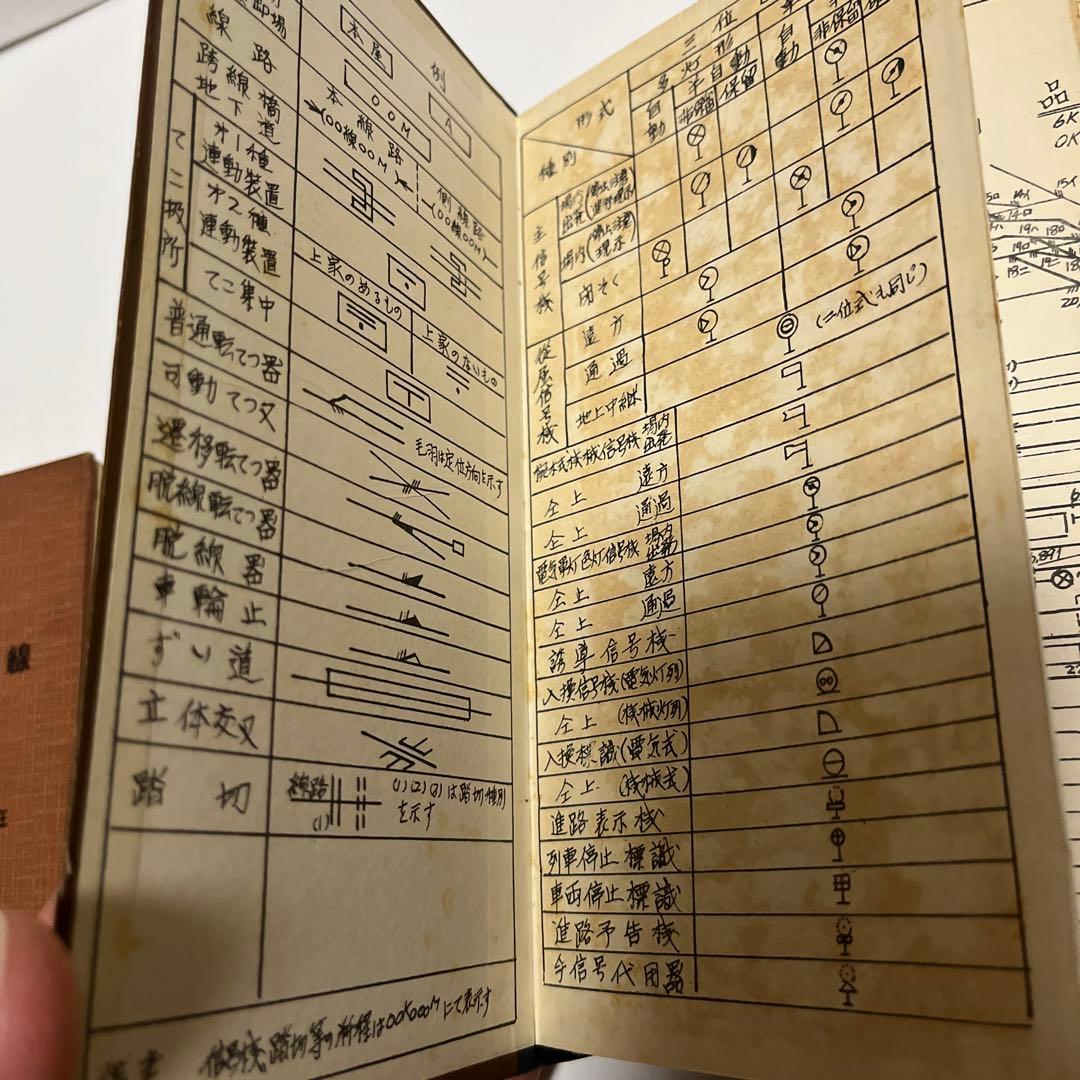 卸場
線路
跨線橋
地下道
てこ扱所
才1種
連動装置
才2種
連動装置
てこ集中
普通転てつ器
可動てつ叉
遷移転てつ器
脱線転てつ器
脱線器
車輪止
ずい道
立体交叉
踏切
本屋
例
〇〇M
A
本線路
〇〇線〇〇M
側線路
〇〇線〇〇M
上家のあるもの
上家のないもの
毛羽は定位方向を示す
線路
(1)
(1)(2)(3)は踏切種別
を示す
信号機、踏切等の
は〇〇K〇〇〇Mにて表示す
三位
多灯形
形式
種別
自動
半自動
非保留
保留
自動
非保留
主信号機
場内
出発
場内
閉そく
遠方
通過
従属信号機
地上中継
(二位式も同じ)
腕木式機械信号機 場内
出発
仝上 遠方
仝上 通過
電気単灯色灯信号機 場内
出発
仝上 遠方
仝上 通過
誘導信号機
入換信号機(電気灯列)
仝上 (機械灯列)
入換標識(電気式)
仝上 (機械式)
進路表示機
列車停止標識
車両停止標識
進路予告機
手信号代用器
線
品
6K
0K
15イ
14イ
14ロ
19ロ
18ロ
18ハ
19ハ
20